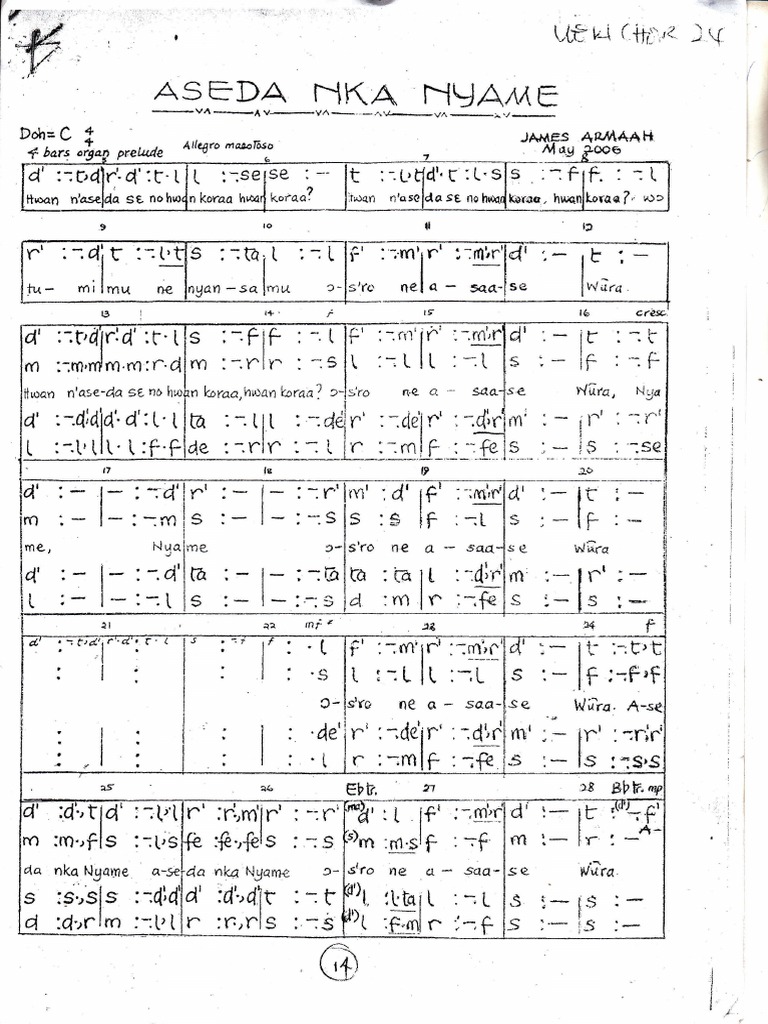 UEW CHOIR 24
ASEDA NKA NYAME
Doh = C 4/4
JAMES ARMAAH
4 bars organ prelude Allegro masotoso May 2006
5 6 7 8
d' :-.t,d|r'.d':t.l|l :-.se|se :-|t :-.l,t|d'.t:l.s|s :-.f|f :-.l
Hwan n'aseda sɛ no hwan koraa hwan koraa? Hwan n'aseda sɛ no hwan koraa, hwan koraa? wɔ
9 10 11 12
r' :-.d'|t :-.l,t|s :-.ta|l :-.l|f' :-.m'|r' :-.m',r'|d' :-|t :-
tu- mi mu ne nyan-sa mu ɔ- s'ro ne a- saa- se Wūra.
13 14 f 15 16 cresc
d' :-.t,d|r'.d':t.l|s :-.f|f :-.l|f' :-.m'|r' :-.m',r'|d' :-|t :-.t
m :-.m,m|m.m:r.d|m :-.r|r :-.s|l :-.l|l :-.l|s :-|f :-.f
Hwan n'ase-da sɛ no hwan koraa, hwan koraa? ɔ- s'ro ne a- saa- se Wūra, Nya
d' :-.d',d'|d'.d':l.l|ta :-.l|l :-.de'|r' :-.de'|r' :-.d',r'|m' :-|r' :-.r'
l :-.l,l|l.l:f.f|de :-.r|r :-.l|r :-.m|f :-.fe|s :-|s :-.se
17 18 19 20
d' :-|- :-.d'|r' :-|- :-.r'|m' :d'|f' :-.m',r'|d' :-|t :-
m :-|- :-.m|s :-|- :-.s|s :s|f :-.l|s :-|f :-
me, Nyame ɔ- s'ro ne a- saa- se Wūra
d' :-|- :-.d'|ta :-|- :-.ta|ta :ta|l :-.d',r'|m :-|r' :-
l :-|- :-.l|s :-|- :-.s|d :m|r :-.fe|s :-|s :-
21 22 mf 23 24 f
d' :-.t,d'|r'.d':t.l|s :-.f|f :.l|f' :-.m'|r' :-.m',r'|d' :-|t :-.t,t
: | : | : | :.s|l :-.l|l :-.l|s :-|f :-.f,f
ɔ- s'ro ne a- saa- se Wūra. A-se
: | : | : | :.de'|r' :-.de'|r' :-.d',r'|m' :-|r' :-.r',r'
: | : | : | :.l|r :-.m|f :-.fe|s :-|s :-.s,s
25 26 Eb tr. 27 28 Bb tr. mp
d' :d',t|d' :-.l,l|r' :r',m'|r' :-.r'|(ma)d' :l|f' :-.m',r'|d' :-|t :(d')-.f'
m :m,f|s :-.l,s|fe :fe,fe|s :-.s|(s)m :m.s|f :-.f|m :-|r :- A-
da nka Nyame a-se-da nka Nyame ɔ- s'ro ne a- saa- se Wūra.
s :s,s|s :-.d',d'|d' :d',d'|t :-.t|(d')l :l.ta|l :-.l|s :-|s :-
d :d,r|m :-.l,l|r :r,r|s :-.s|(d')l :f.m|r :-.f|s :-|s :-
14